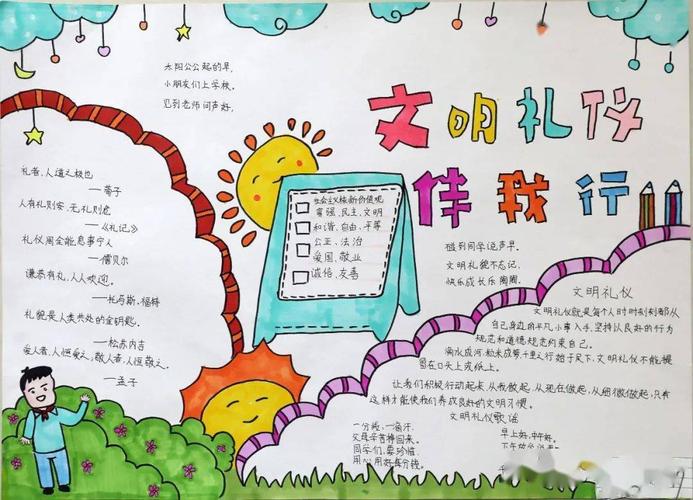 太阳公公起的早,
小朋友们上学校。
见到老师问声好,
文明礼仪
伴我行
礼者,人道之极也
——荀子
人有礼则安,无礼则危
——《礼记》
礼仪周全能息事宁人
——儒贝尔
谦恭有礼,人人欢迎。
——托与斯·福特
礼貌是人类共处的金钥匙。
——松苏内吉
爱人者,人恒爱之,敬人者,人恒敬之。
——孟子
社会主义核新价值观
富强,民主,文明
和谐,自由,平等
公正,法治
爱国,敬业
诚信,友善
碰到同学说声早。
文明礼貌不忘记,
快乐成长乐陶陶。
文明礼仪
文明礼仪就是每个人时时刻刻都从
自己身边的平凡小事入手,坚持以良好的行为
规范和道德规范约束自己。
滴水成河,粒米成箩,千里之行始于足下,文明礼仪不能
留在口头上或纸上。
让我们积极行动起来,从我做起,从现在做起,从细微做起,只有
这样才能使我们养成良好的文明习惯。
文明礼仪歌谣
一分钱,一滴汗,
父母辛苦挣回来。
同学们,要珍惜,
用心用好每分钱。
早上好,中午好,